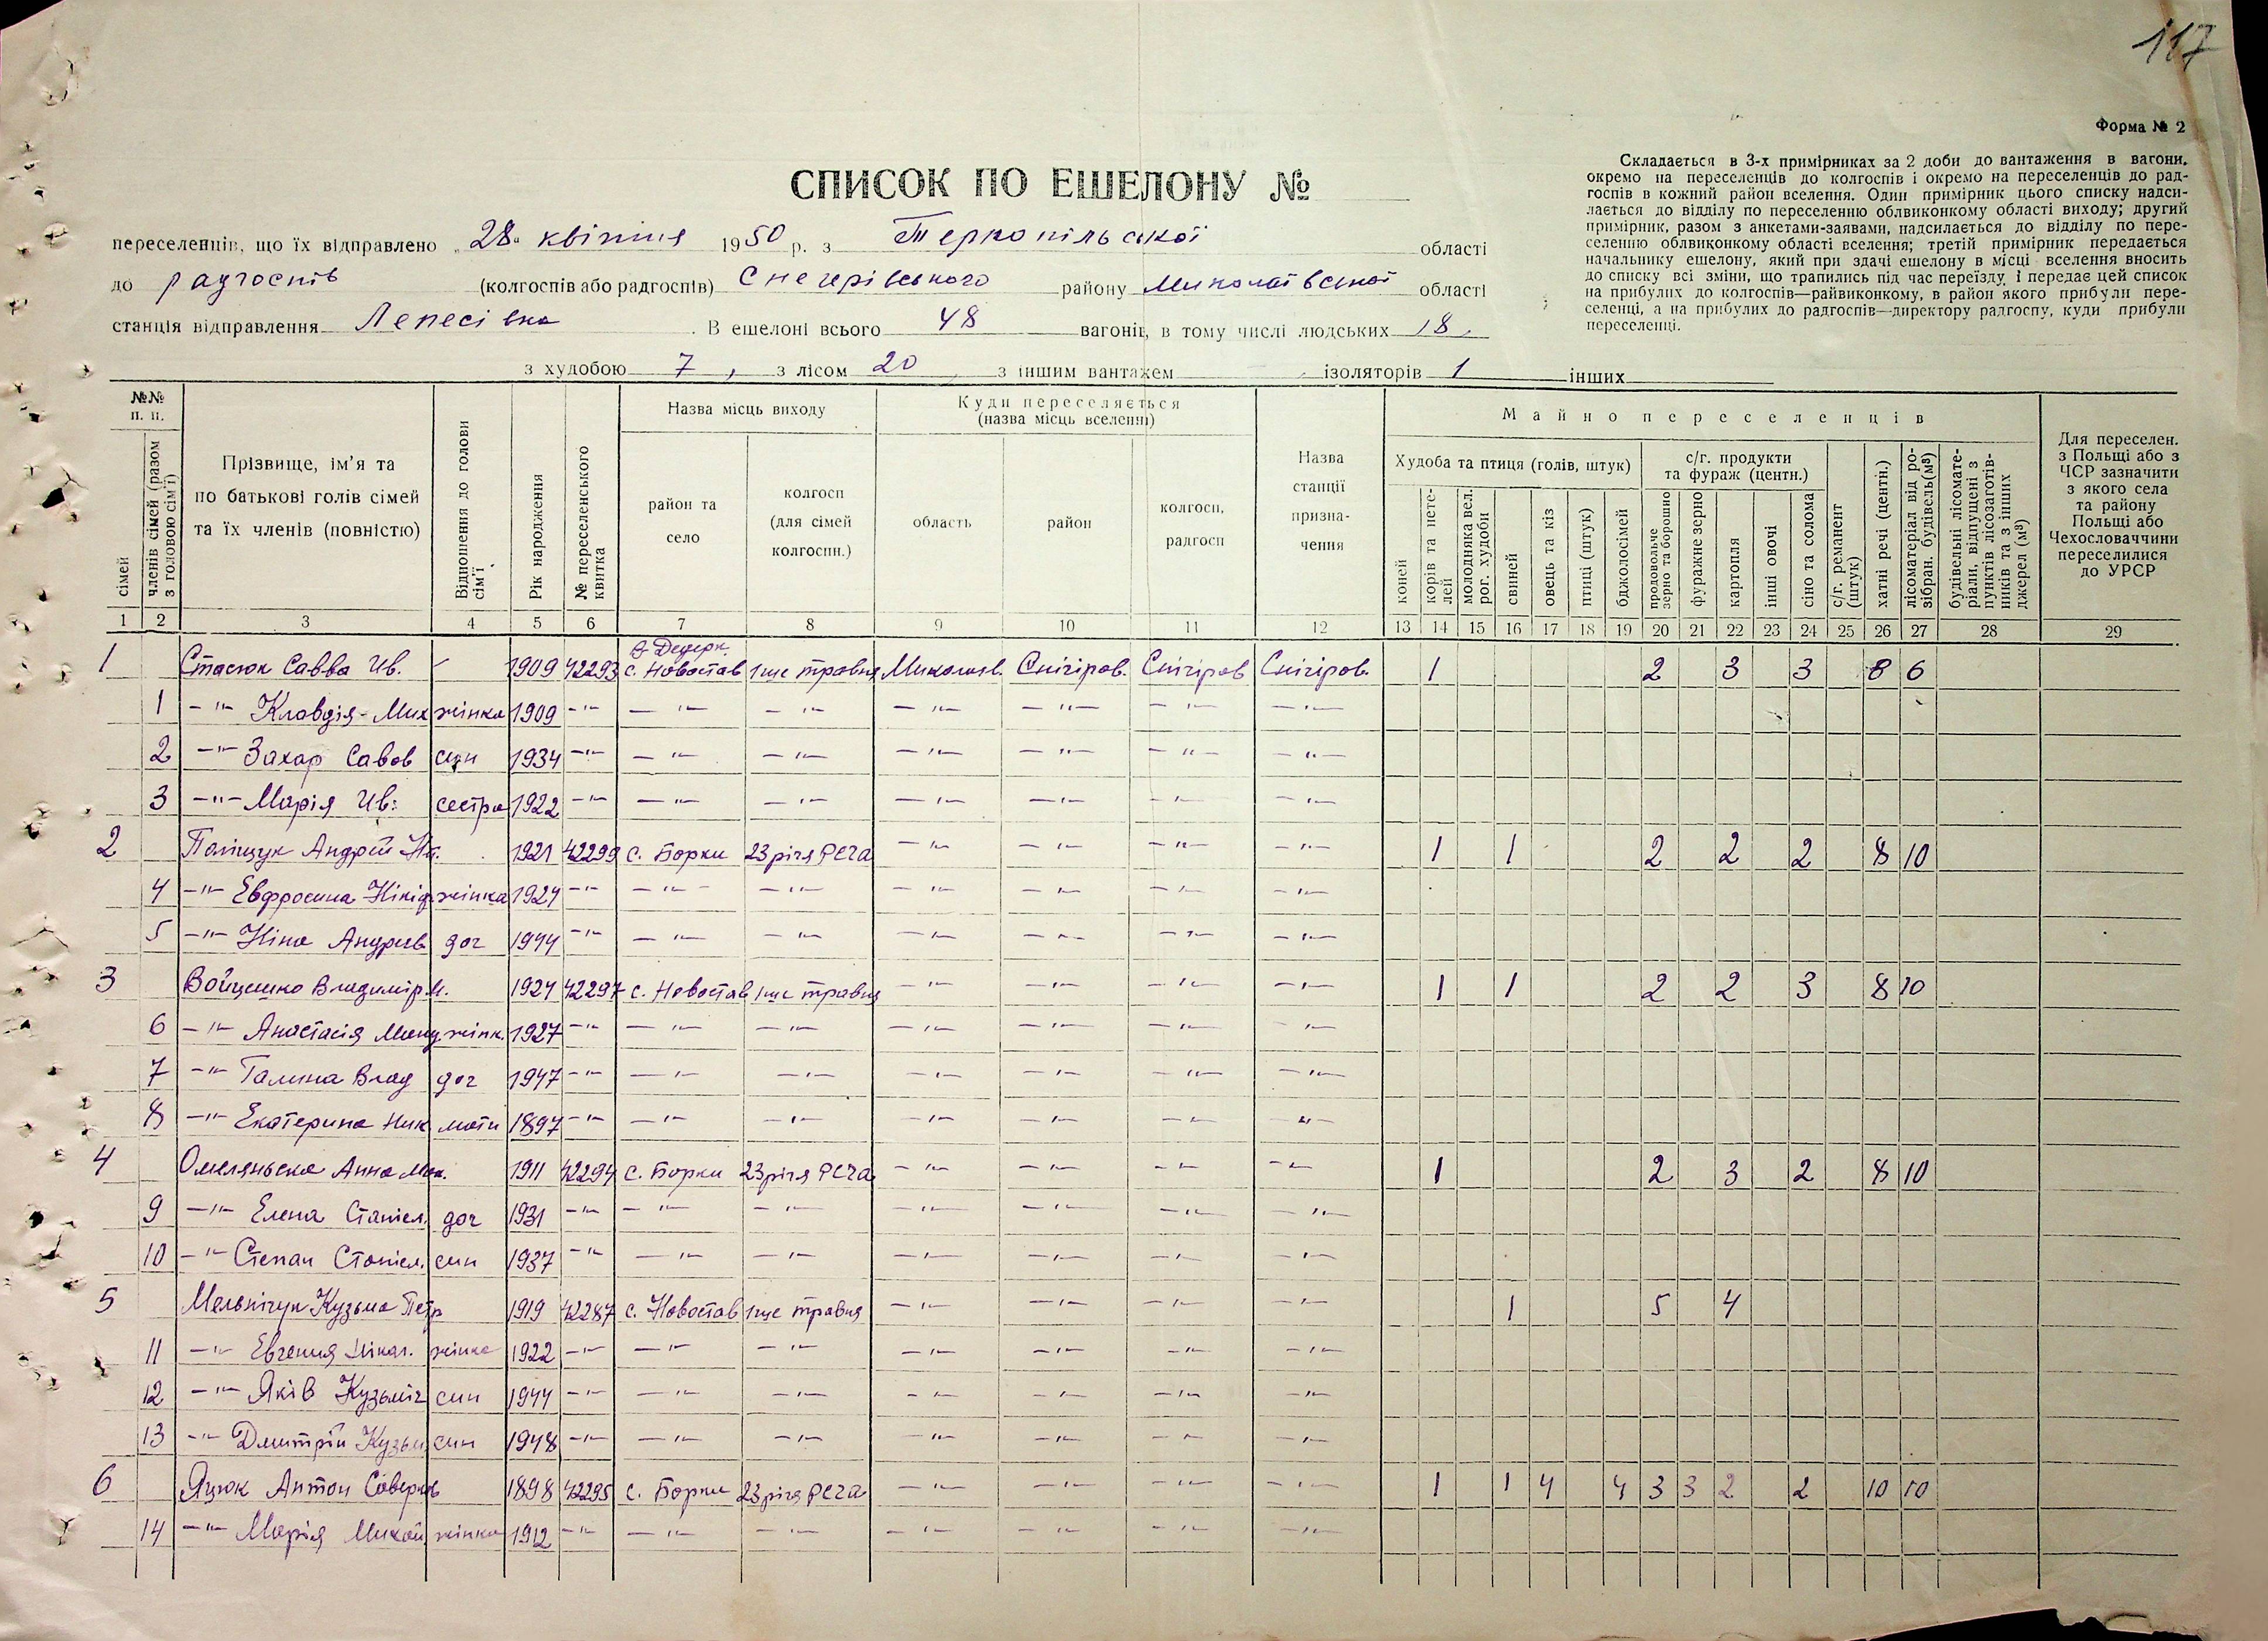 117
Форма № 2
СПИСОК ПО ЕШЕЛОНУ №
Складається в 3-х примірниках за 2 доби до вантаження в вагони,
окремо на переселенців до колгоспів і окремо на переселенців до рад-
госпів в кожний район вселення. Один примірник цього списку надси-
лається до відділу по переселенню облвиконкому області виходу; другий
примірник, разом з анкетами-заявами, надсилається до відділу по пере-
селенню облвиконкому області вселення; третій примірник передається
начальнику ешелону, який при здачі ешелону в місці вселення вносить
до списку всі зміни, що трапились під час переїзду, і передає цей список
на прибулих до колгоспів—райвиконкому, в район якого прибули пере-
селенці, а на прибулих до радгоспів—директору радгоспу, куди прибули
переселенці.
переселенців, що їх відправлено 28 квітня 1950 р. з Тернопільської області
до радгоспів (колгоспів або радгоспів) Снегерівського району Миколаївської області
станція відправлення Лепесівка. В ешелоні всього 48 вагонів, в тому числі людських 18,
з худобою 7, з лісом 20, з іншим вантажем — ізоляторів 1 інших
№№ п. п.
сімей
членів сімей (разом з головою сім'ї)
Прізвище, ім'я та по батькові голів сімей та їх членів (повністю)
Відношення до голови сім'ї
Рік народження
№ переселенського квитка
Назва місць виходу
район та село
колгосп (для сімей колгоспн.)
Куди переселяється (назва місць вселення)
область
район
колгосп, радгосп
Назва станції призна-чення
Майно переселенців
Худоба та птиця (голів, штук)
коней
корів та нете-лей
молодняка вел. рог. худоби
свиней
овець та кіз
птиці (штук)
бджолосімей
с/г. продукти та фураж (центн.)
продовольче зерно та борошно
фуражне зерно
картопля
інші овочі
сіно та солома
с/г. реманент (штук)
хатні речі (центн.)
лісоматеріал від ро-зібран. будівель (м³)
будівельні лісомате-ріали, відпущені з пунктів лісозаготів-ників та з інших джерел (м³)
Для переселен. з Польщі або з ЧСР зазначити з якого села та району Польщі або Чехословаччини переселилися до УРСР
1 2 3 4 5 6 7 8 9 10 11 12 13 14 15 16 17 18 19 20 21 22 23 24 25 26 27 28 29
1 Стасюк Савва Ив. — 1909 42293 с. Новостав 1ше травня Миколаїв. Снігіров. Снігіров Снігіров. 1 2 3 3 8 6
1 —"— Клавдія Мих жінка 1909 —"— —"— —"— —"— —"— —"— —"—
2 —"— Захар Савов син 1934 —"— —"— —"— —"— —"— —"— —"—
3 —"— Марія Ив: сестра 1922 —"— —"— —"— —"— —"— —"— —"—
2 Поліщук Андрій 1921 42299 с. Борки 23 річя РСЧА —"— —"— —"— —"— 1 1 2 2 2 8 10
4 —"— Евфросина Нікіф. жінка 1924 —"— —"— —"— —"— —"— —"— —"—
5 —"— Ніна Андрієв доч 1944 —"— —"— —"— —"— —"— —"— —"—
3 Войцешко Владимір М. 1924 42297 с. Новостав 1ше травня —"— —"— —"— —"— 1 1 2 2 3 8 10
6 —"— Анастасія жінк. 1927 —"— —"— —"— —"— —"— —"— —"—
7 —"— Галина Влад доч 1947 —"— —"— —"— —"— —"— —"— —"—
8 —"— Екатерина Ник мати 1897 —"— —"— —"— —"— —"— —"— —"—
4 Омеляньска Анна Мак. 1911 42294 с. Борки 23 річя РСЧА —"— —"— —"— —"— 1 2 3 2 8 10
9 —"— Елена Станісл. доч 1931 —"— —"— —"— —"— —"— —"— —"—
10 —"— Степан Станісл. син 1937 —"— —"— —"— —"— —"— —"— —"—
5 Мельничук Кузьма Петр 1919 42287 с. Новостав 1ше травня —"— —"— —"— —"— 1 5 4
11 —"— Евгения Нікол. жінка 1922 —"— —"— —"— —"— —"— —"— —"—
12 —"— Яків Кузьміч син 1944 —"— —"— —"— —"— —"— —"— —"—
13 —"— Дмитрій Кузьм син 1948 —"— —"— —"— —"— —"— —"— —"—
6 Яцюк Антон Северів 1898 42295 с. Борки 23 річя РСЧА —"— —"— —"— —"— 1 1 4 4 3 3 2 2 10 10
14 —"— Марія Михай жінка 1912 —"— —"— —"— —"— —"— —"— —"—